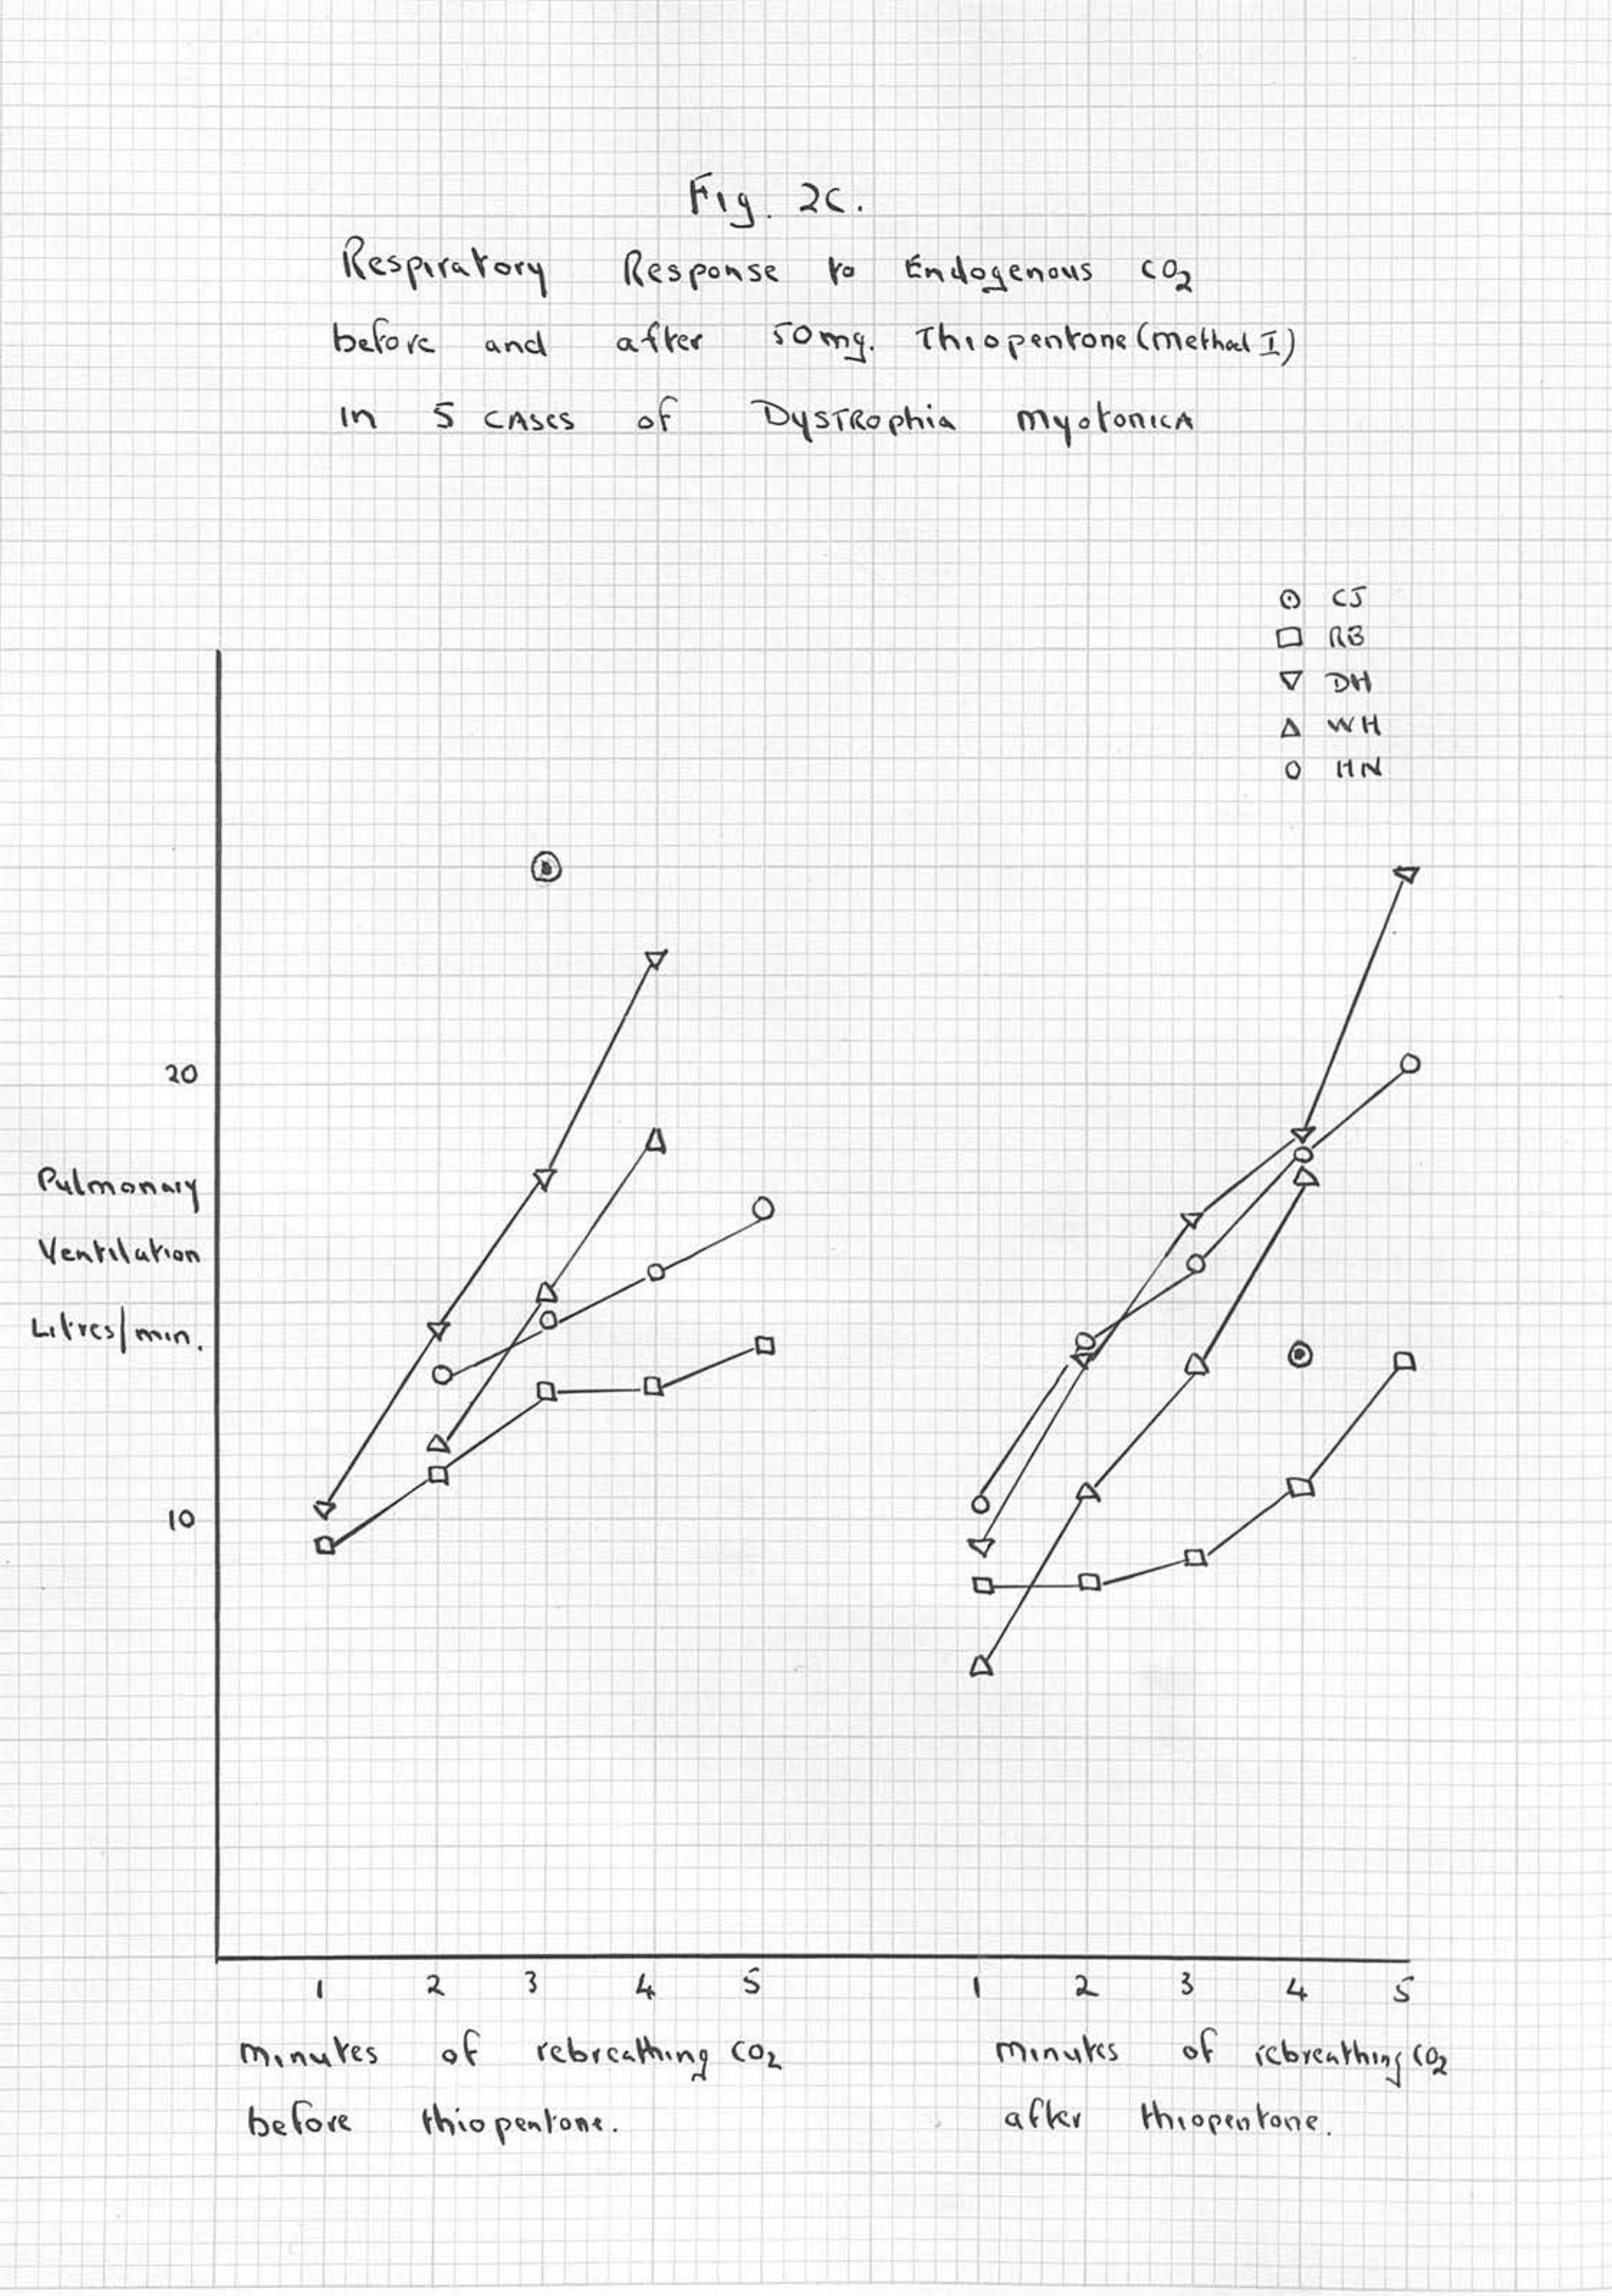 Fig. 2C.
Respiratory Response to Endogenous CO2
before and after 50mg. Thiopentone (Method I)
in 5 CASES of DYSTROphia myotonicA
⊙ CJ
□ RB
▽ DH
△ WH
○ HN
20
Pulmonary
Ventilation
Litres/min.
10
1 2 3 4 5 1 2 3 4 5
minutes of rebreathing CO2
before thiopentone.
minutes of rebreathing CO2
after thiopentone.